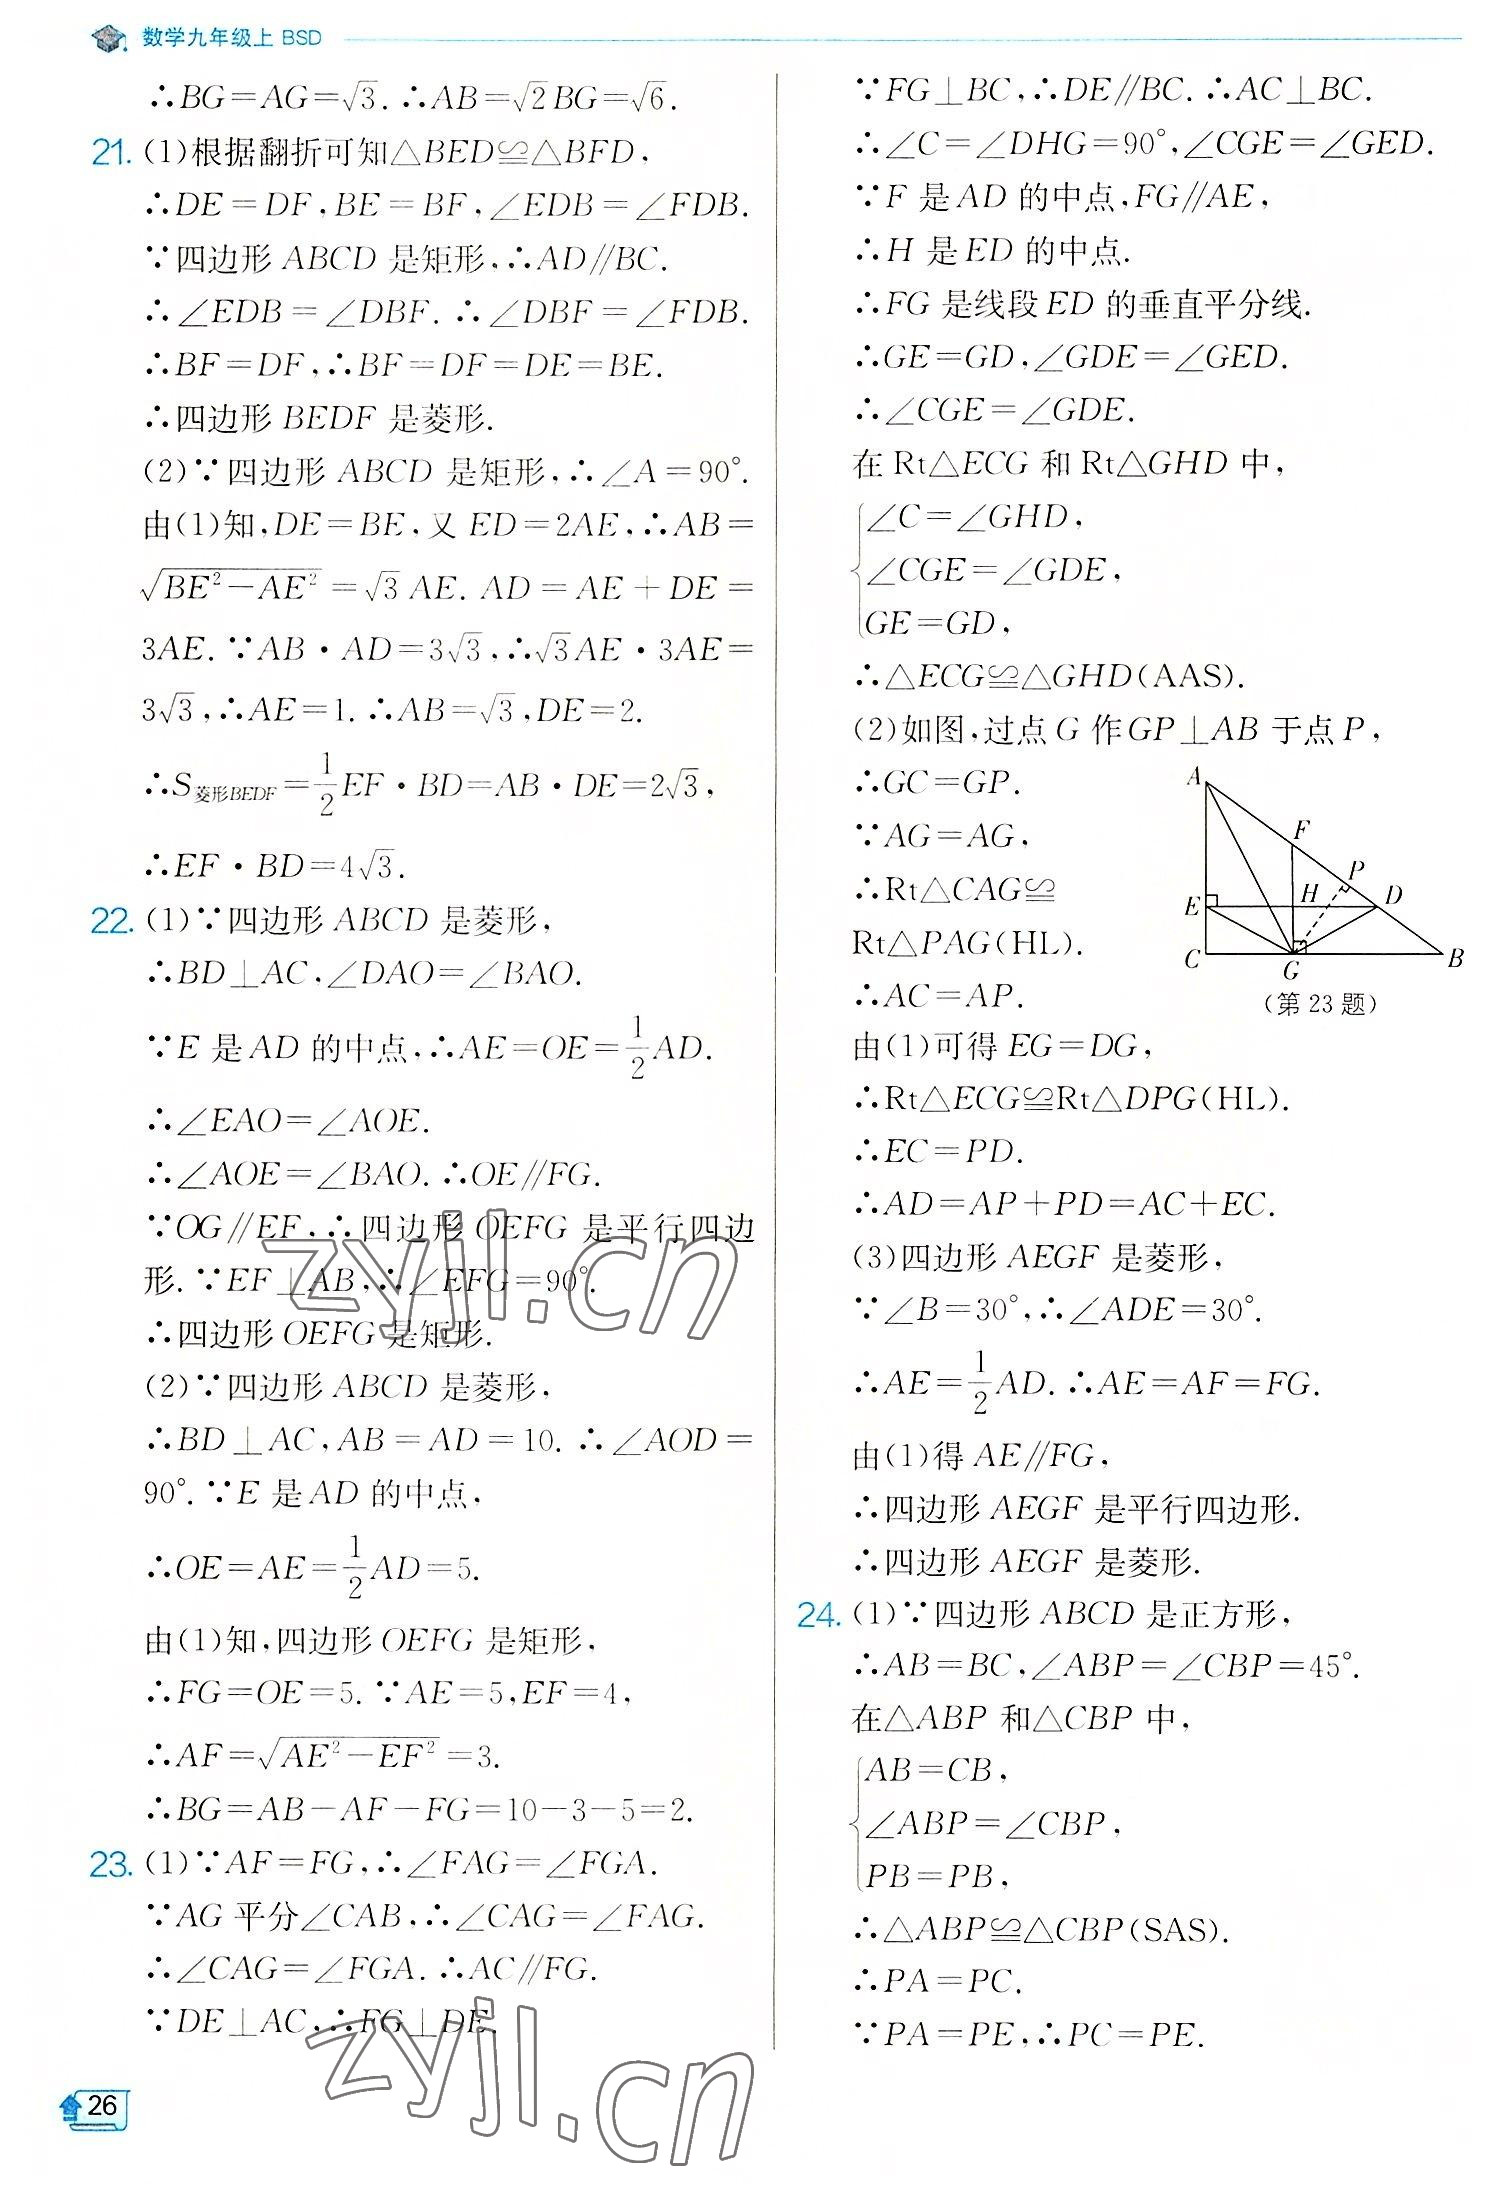 数学九年级上 BSD
∴BG=AG=√3. ∴AB=√2BG=√6.
21. (1)根据翻折可知△BED≌△BFD,
∴DE=DF,BE=BF,∠EDB=∠FDB.
∵四边形 ABCD 是矩形,∴AD∥BC.
∴∠EDB=∠DBF. ∴∠DBF=∠FDB.
∴BF=DF,∴BF=DF=DE=BE.
∴四边形 BEDF 是菱形.
(2)∵四边形 ABCD 是矩形,∴∠A=90°.
由(1)知,DE=BE,又 ED=2AE,∴AB=
√(BE²-AE²)=√3AE. AD=AE+DE=
3AE. ∵AB·AD=3√3,∴√3AE·3AE=
3√3,∴AE=1. ∴AB=√3,DE=2.
∴S菱形BEDF=1/2EF·BD=AB·DE=2√3,
∴EF·BD=4√3.
22. (1)∵四边形 ABCD 是菱形,
∴BD⊥AC,∠DAO=∠BAO.
∵E 是 AD 的中点,∴AE=OE=1/2AD.
∴∠EAO=∠AOE.
∴∠AOE=∠BAO. ∴OE∥FG.
∵OG∥EF,∴四边形 OEFG 是平行四边
形. ∵EF⊥AB,∴∠EFG=90°.
∴四边形 OEFG 是矩形.
(2)∵四边形 ABCD 是菱形,
∴BD⊥AC,AB=AD=10. ∴∠AOD=
90°. ∵E 是 AD 的中点,
∴OE=AE=1/2AD=5.
由(1)知,四边形 OEFG 是矩形,
∴FG=OE=5. ∵AE=5,EF=4,
∴AF=√(AE²-EF²)=3.
∴BG=AB-AF-FG=10-3-5=2.
23. (1)∵AF=FG,∴∠FAG=∠FGA.
∵AG 平分∠CAB,∴∠CAG=∠FAG.
∴∠CAG=∠FGA. ∴AC∥FG.
∵DE⊥AC,∴FG⊥DE.
∵FG⊥BC,∴DE∥BC. ∴AC⊥BC.
∴∠C=∠DHG=90°,∠CGE=∠GED.
∵F 是 AD 的中点,FG∥AE,
∴H 是 ED 的中点.
∴FG 是线段 ED 的垂直平分线.
∴GE=GD,∠GDE=∠GED.
∴∠CGE=∠GDE.
在 Rt△ECG 和 Rt△GHD 中,
∠C=∠GHD,
∠CGE=∠GDE,
GE=GD,
∴△ECG≌△GHD(AAS).
(2)如图,过点 G 作 GP⊥AB 于点 P,
∴GC=GP.
∵AG=AG,
∴Rt△CAG≌
Rt△PAG(HL).
∴AC=AP.
A
F
P
E
H
D
C
G
B
(第 23 题)
由(1)可得 EG=DG,
∴Rt△ECG≌Rt△DPG(HL).
∴EC=PD.
∴AD=AP+PD=AC+EC.
(3)四边形 AEGF 是菱形,
∵∠B=30°,∴∠ADE=30°.
∴AE=1/2AD. ∴AE=AF=FG.
由(1)得 AE∥FG,
∴四边形 AEGF 是平行四边形.
∴四边形 AEGF 是菱形.
24. (1)∵四边形 ABCD 是正方形,
∴AB=BC,∠ABP=∠CBP=45°.
在△ABP 和△CBP 中,
AB=CB,
∠ABP=∠CBP,
PB=PB,
∴△ABP≌△CBP(SAS).
∴PA=PC.
∵PA=PE,∴PC=PE.
26
zyjl.cn
zyjl.cn